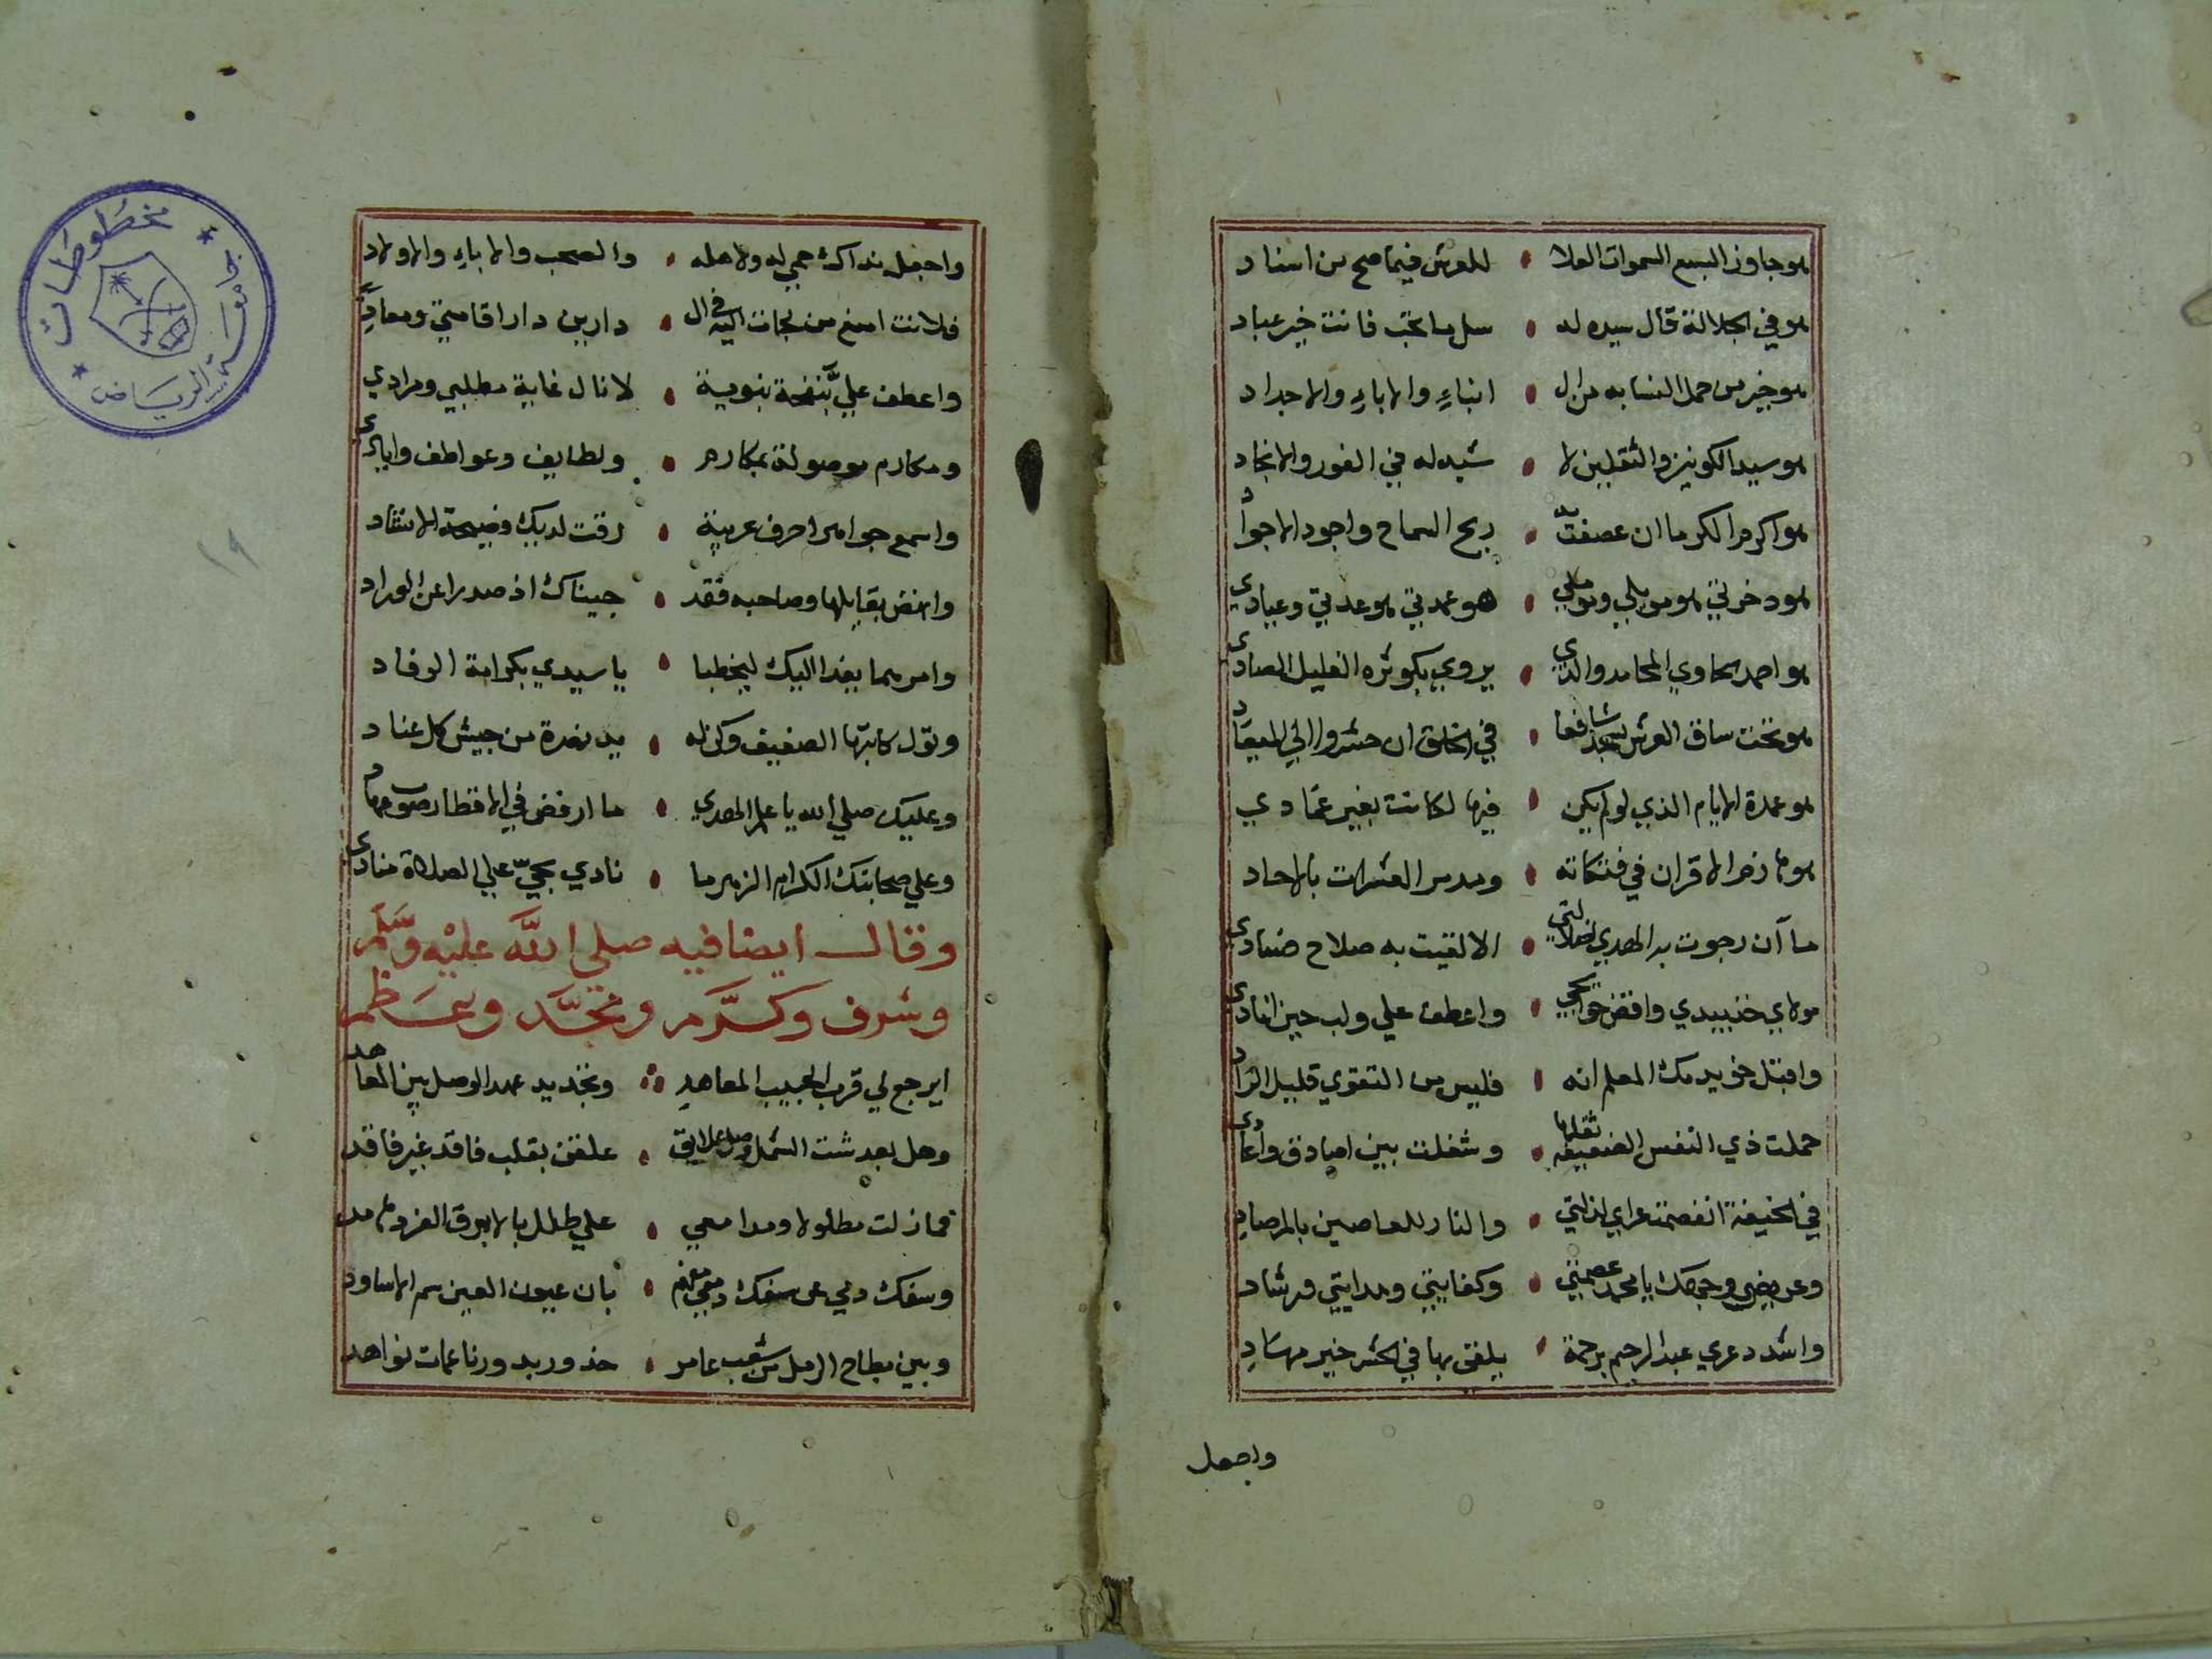 هو جاوز السبع السموات العلا • للعرش فيما صح من اسناد
هو في الجلالة قال سيده له • سل ما تحب فانت خير عباد
هو خير من حمل النسا به من ال • ابناءِ والاباءِ والاجداد
هو سيد الكونين والثقلين لا • شبه له في الغور والانجاد
هو اكرم الكرما ان عصفت به • ريح السماح واجود الاجواد
هو ذخرتي هو مويلي ومؤملي • هو عمدتي هو عدتي وعبادي
هو احمد الحاوي المحامد والذي • يروي بكوثره الغليل الصادي
هو تحت ساق العرش يسجد شافعا • في الخلق ان حشروا الي الميعاد
هو عمدة الايام الذي لو لم يكن • فيها لكانت بغير عمادي
هو هازم الاقران في فتكاته • ومدمر العشرات بالاحاد
ما ان رجوت به الهدي لضلالتي • الا لقيت به صلاح فسادي
مولاي خذ بيدي واقض حوايجي • واعطف علي ولب حين انادي
واقبل خويدمك المعلم انه • فليس من التقوي قليل الزاد
حملت ذي النفس الضعيفة ثقلها • وشغلت بين اصادق واعادي
في الخيفة انفصمت عراي لذلتي • والنار للعاصين بالمرصادِ
وعريضي وجهك يا محمد عصمتي • وكفايتي وهدايتي ورشاد
واشدد عري عبد الرحيم برحمة • يلقى بها في الحشر خير مهادِ
واجعل
واجعل نداك حمي له ولاهله • والصحب والاباءِ والاولاد
فلانت امنع من لجات اليه في ال • دارين دار اقامتي ومعادي
واعطف عليَّ بنفحة نبوية • لانال غاية مطلبي ومرادي
ومكارم موصولة بمكارم • ولطايف وعواطف وايادي
واسمع جواهر احرف عربية • رقت لديك فصيحة الانشاد
وانهض بقايلها وصاحبه فقد • جيناك اذ صدرا عن الوراد
وامرهما بغدا اليك ليخطبا • يا سيدي بكرامة الوفاد
وتول كاتبها الضعيف وكن له • يد نصرة من جيش كل عناد
وعليك صلي الله يا علم الهدي • ما ارفض في الاقطار صوب عهاد
وعلي صحابتك الكرام الزهر ما • نادي بحيّ علي الصلاة منادي
وقال ايضا فيه صلي الله عليه وسلم
وشرف وكرم ومجد وعظم
ايرجع لي قرب الحبيب المعاهدِ • وتجديد عهد الوصل بين المعاهد
وهل بعد شت الشمل وصل علايق • علقن بقلب فاقد غير فاقد
فما زلت مطلولا ومدامعي • علي طلل بالابرق الفرد هامد
وسفك دمي عن سفك دمعي مفهم • بان عيون العين سم الاساود
وبين بطاح الرمل من شعب عامر • خدور بدور ناعمات نواهد
مخطوطات
جامعة الرياض
١٩